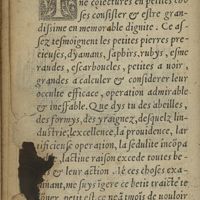 Ne coiectures en petites cho
ses consister & estre gran-
dissime en memorable dignité. Ce as-
sez tesmoignent les petites pierres pre-
cieuses, dyamans, saphirs, rubys, esme
raudes, escarboucles, petites a uoir,
grandes a calculer & considerer leur
occulte efficace, operation admirable
& ineffable. Que dys tu des abeilles,
des formys, des yraignez, desquelz lin
dustrie, lexcellence, la prouidence, lar
tificieuse operation, la sedulite incōpa
lactiue raison excede toutes be
s & leur action. Jé ces choses exa-
inant, me suys īgere ce petit traictè te
oner, petit est ce neāt mois de uouloir